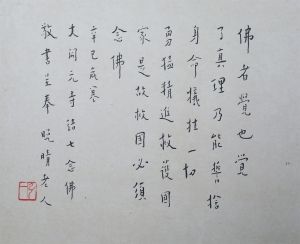 佛者覺也覺
了真理乃能誓捨
身命犧牲一切
勇猛精進救護国
家是故救国必須
念佛
辛巳歲寒
大開元寺結七念佛
敬書呈奉 晚晴老人